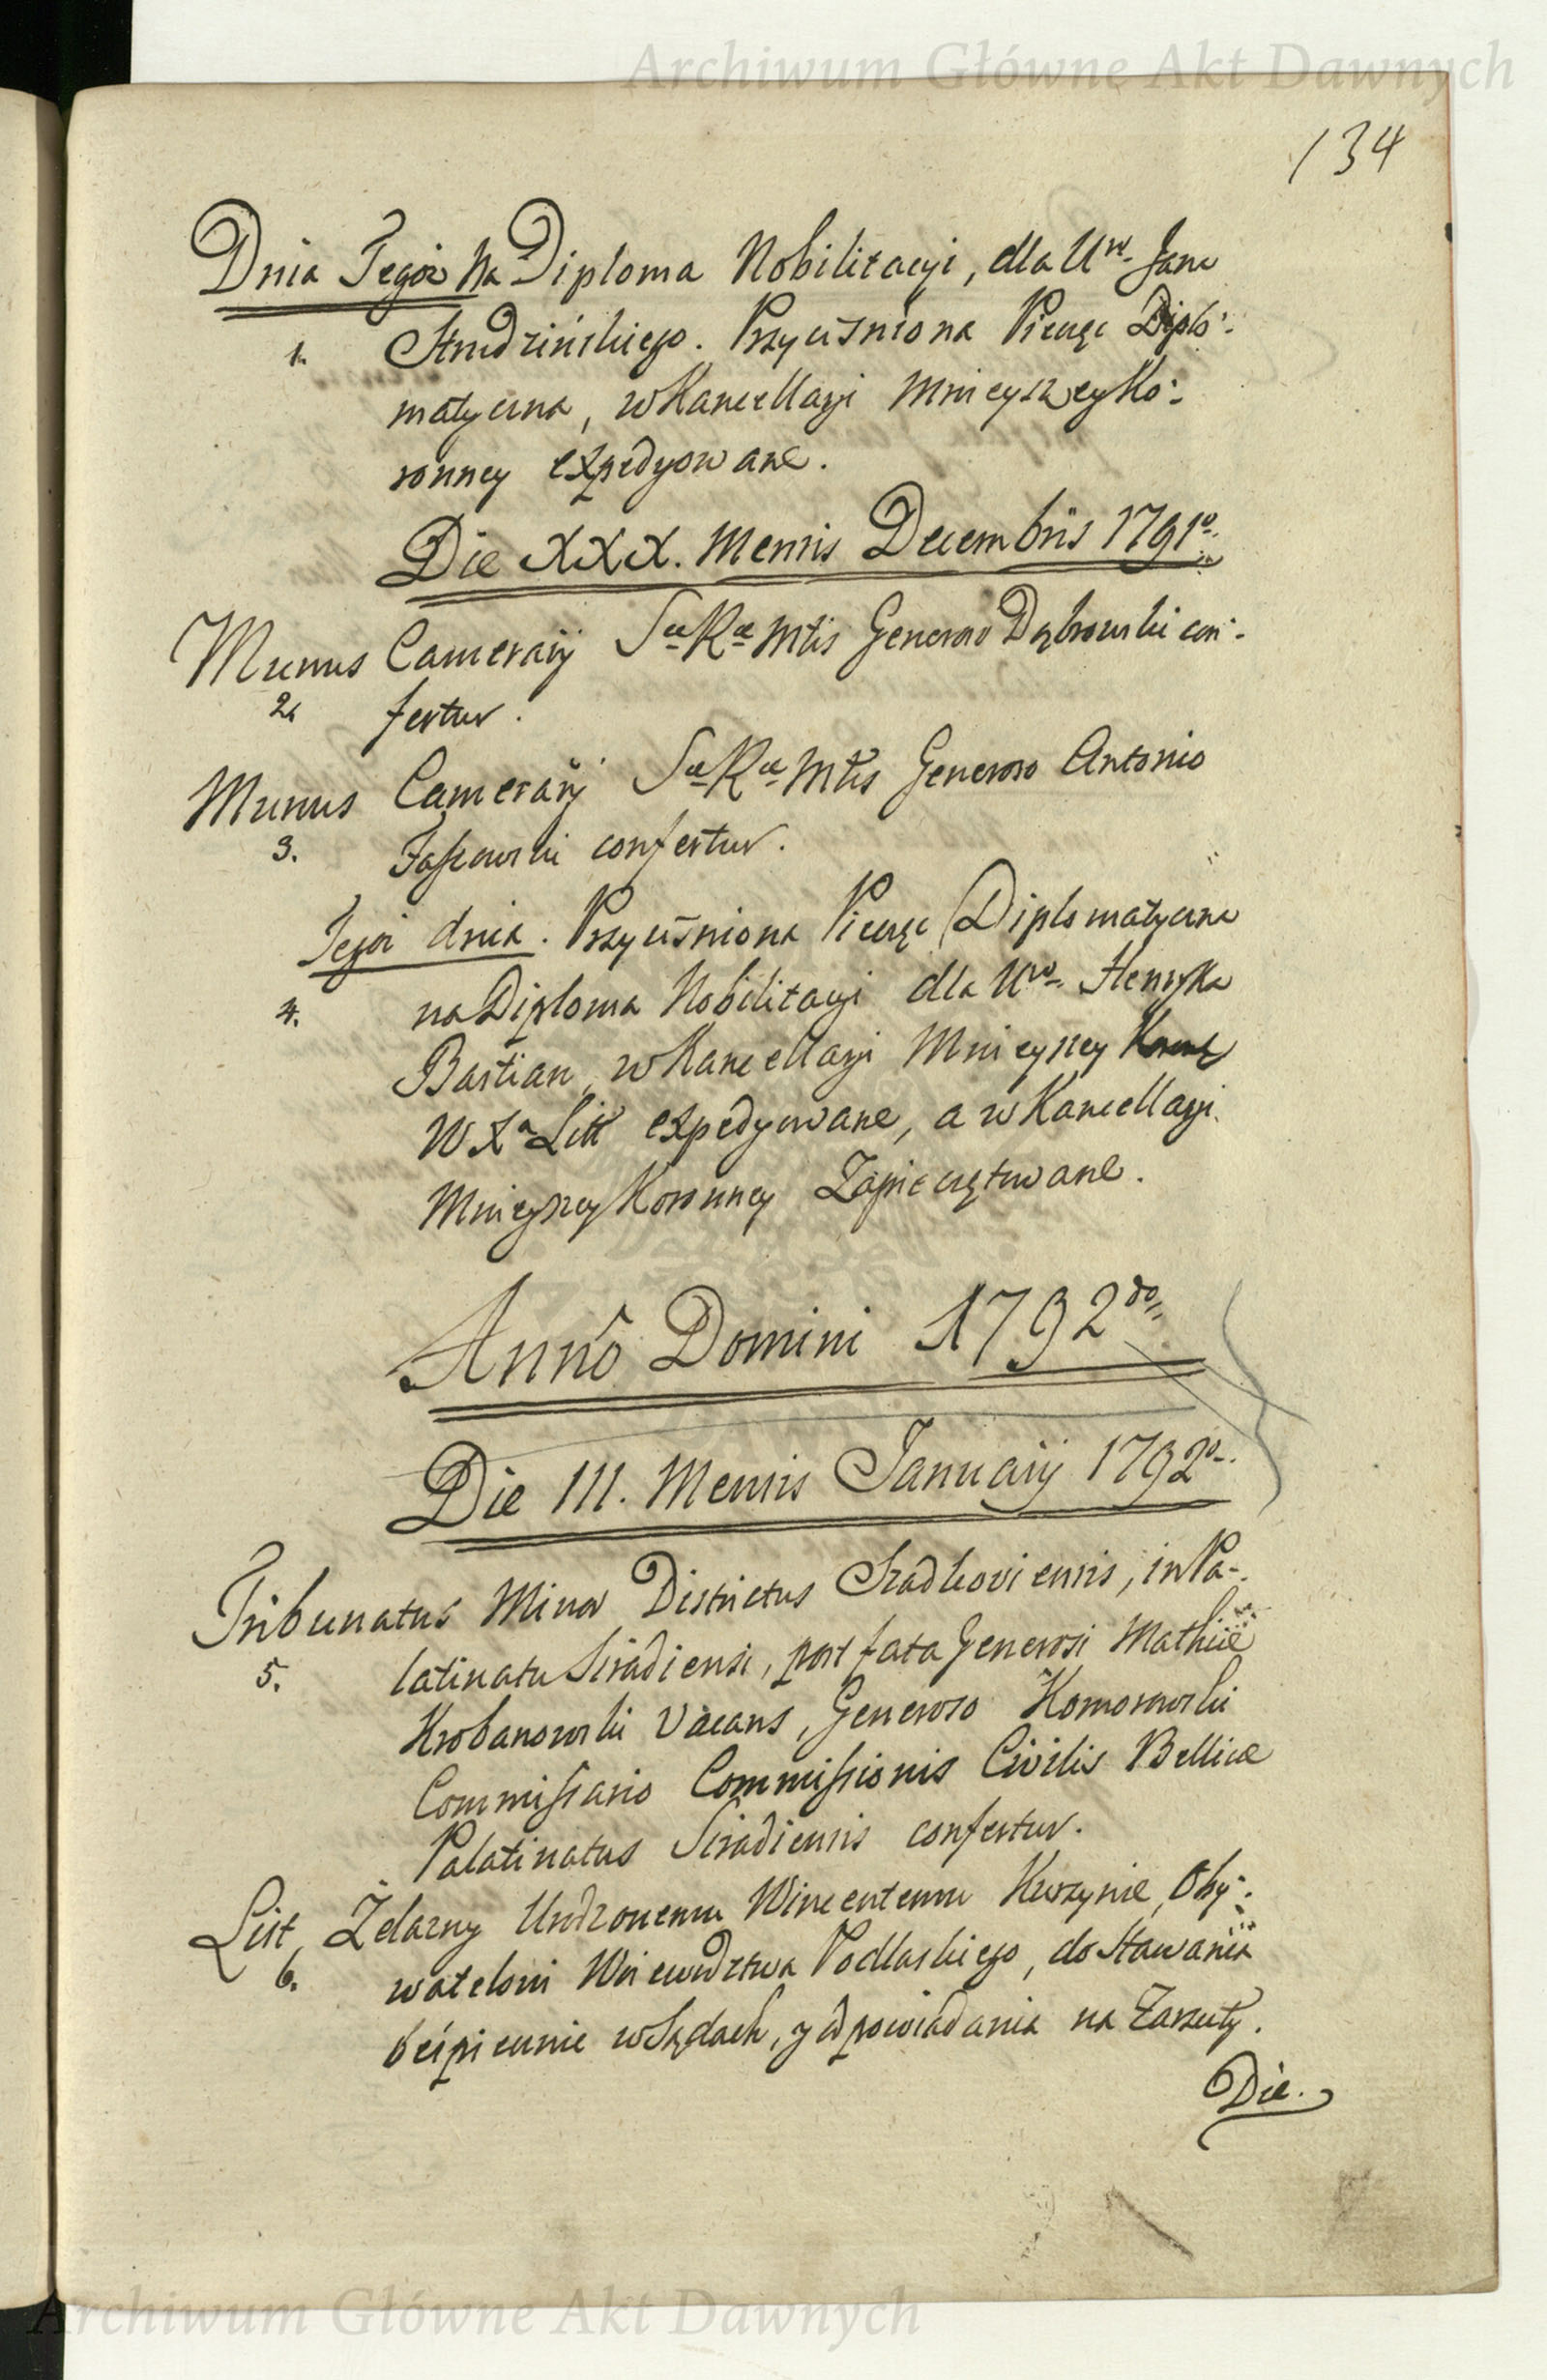 Archiwum Główne Akt Dawnych
134
Dnia Tegoż Na Diploma Nobilitacyi, dla Uro Jana
1. Strudzińskiego. Przyciśniona Pieczęć Diplo:
matyczna, w Kancellaryi Mnieyszey Ko:
ronney expedyowane.
Die XXX. Mensis Decembris 1791o
Munus Camerarij Sae Rae Mtis Generoso Dąbrowski con:
2. fertur.
Munus Camerarij Sae Rae Mtis Generoso Antonio
3. confertur.
Tegoż dnia. Przyciśniona Pieczęć Diplomatyczna
4. na Diploma Nobilitacyi dla Uro Henryka
Bastian, w Kancellaryi Mnieyszey
W X a Litt expedyowane, a w Kancellaryi
Mnieyszey Koronney Zapieczętowane.
Anno Domini 1792do
Die III. Mensis Januarij 1792o
Tribunatus Minor Districtus Szadkoviensis, in Pa:
5. latinatu Siradiensi, post fata Generosi Mathiæ
Krobanowski Vacans, Generoso Komorowski
Commissario Commissionis Civilis Bellicæ
Palatinatus Siradiensis confertur.
List Żelazny Urodzonemu Wincentemu Kuszynie, Oby:
6. watelowi Woiewodztwa Podlaskiego, do Stawania
béśpiecznie w Sądach, y odpowiadania na Zarzuty.
Die.
Archiwum Główne Akt Dawnych